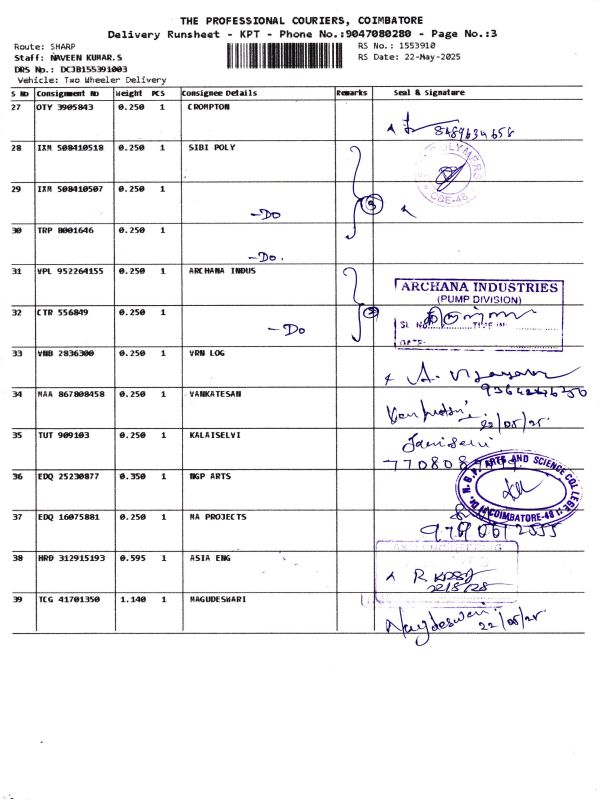 THE PROFESSIONAL COURIERS, COIMBATORE
Delivery Runsheet - KPT - Phone No.:9047080280 - Page No.:3
Route: SHARP
RS No.: 1553910
Staff: NAVEEN KUMAR.S
RS Date: 22-May-2025
DRS No.: DCJB155391003
Vehicle: Two Wheeler Delivery
S No Consignment No Weight PCS Consignee Details Remarks Seal & Signature
27 OTY 3905843 0.250 1 CROMPTON
28 IXM 508410518 0.250 1 SIBI POLY
29 IXM 508410507 0.250 1
-Do
3
CBE-48
30 TRP 8001646 0.250 1
-Do.
31 VPL 952264155 0.250 1 ARCHANA INDUS
ARCHANA INDUSTRIES
(PUMP DIVISION)
32 CTR 556849 0.250 1
-Do
2
SL No. TIME IN:
DATE:
33 VNB 2836300 0.250 1 VRN LOG
34 MAA 867808458 0.250 1 VANKATESAN
22/05/25.
35 TUT 909103 0.250 1 KALAISELVI
36 EDQ 25230877 0.350 1 NGP ARTS
Dr. N.G.P. ARTS AND SCIENCE COLLEGE
COIMBATORE-48
37 EDQ 16075881 0.250 1 MA PROJECTS
38 HRD 312915193 0.595 1 ASIA ENG
39 TCG 41701350 1.140 1 MAGUDESWARI
22/05/25.